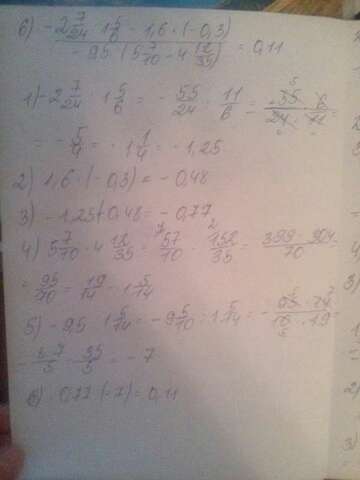 б) -2 7/24 : 1 5/6 - 1,6 · (-0,3)
-9,5 : (5 7/10 - 4 12/35) = 0,11
1) -2 7/24 : 1 5/6 = - 55/24 : 11/6 = - 55 · 6 / 24 · 11 =
= - 5/4 = - 1 1/4 = -1,25
2) 1,6 · (-0,3) = -0,48
3) -1,25+0,48 = -0,77
4) 5 7/10 - 4 12/35 = 57/10 - 152/35 = 399 - 304 / 70
= 95/70 = 19/14 = 1 5/14
5) -9,5 : 1 5/14 = -9 5/10 : 1 5/14 = - 95 · 14 / 10 · 19 =
- 5 · 7 / 5 = - 35/5 = -7
6) -0,77 : (-7) = 0,11